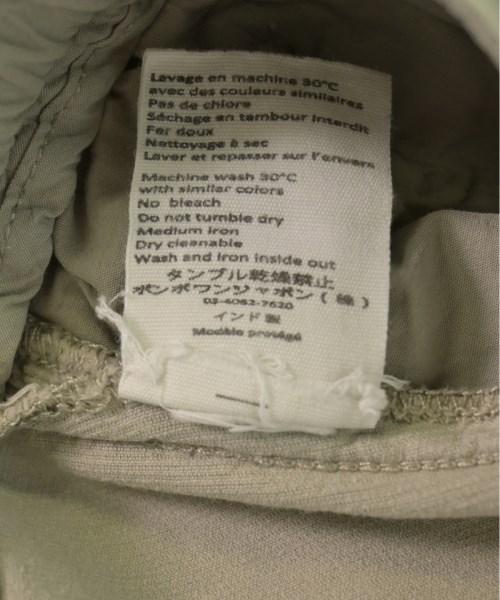 Lavage en machine 30°C
avec des couleurs similaires
Pas de chlore
Séchage en tambour interdit
Fer doux
Nettoyage à sec
Laver et repasser sur l'envers
Machine wash 30°C
with similar colors
No bleach
Do not tumble dry
Medium iron
Dry cleanable
Wash and iron inside out
タンブル乾燥禁止
ボンポワンジャポン(株)
03-6062-7620
インド製
Modèle protégé